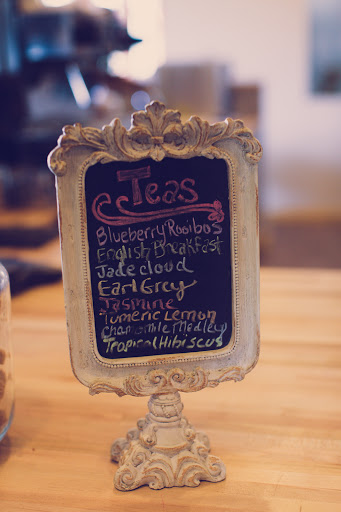 Teas
Blueberry Rooibos
English Breakfast
Jade cloud
Earl Grey
Jasmine
Tumeric Lemon
Chamomile Medley
Tropical Hibiscus